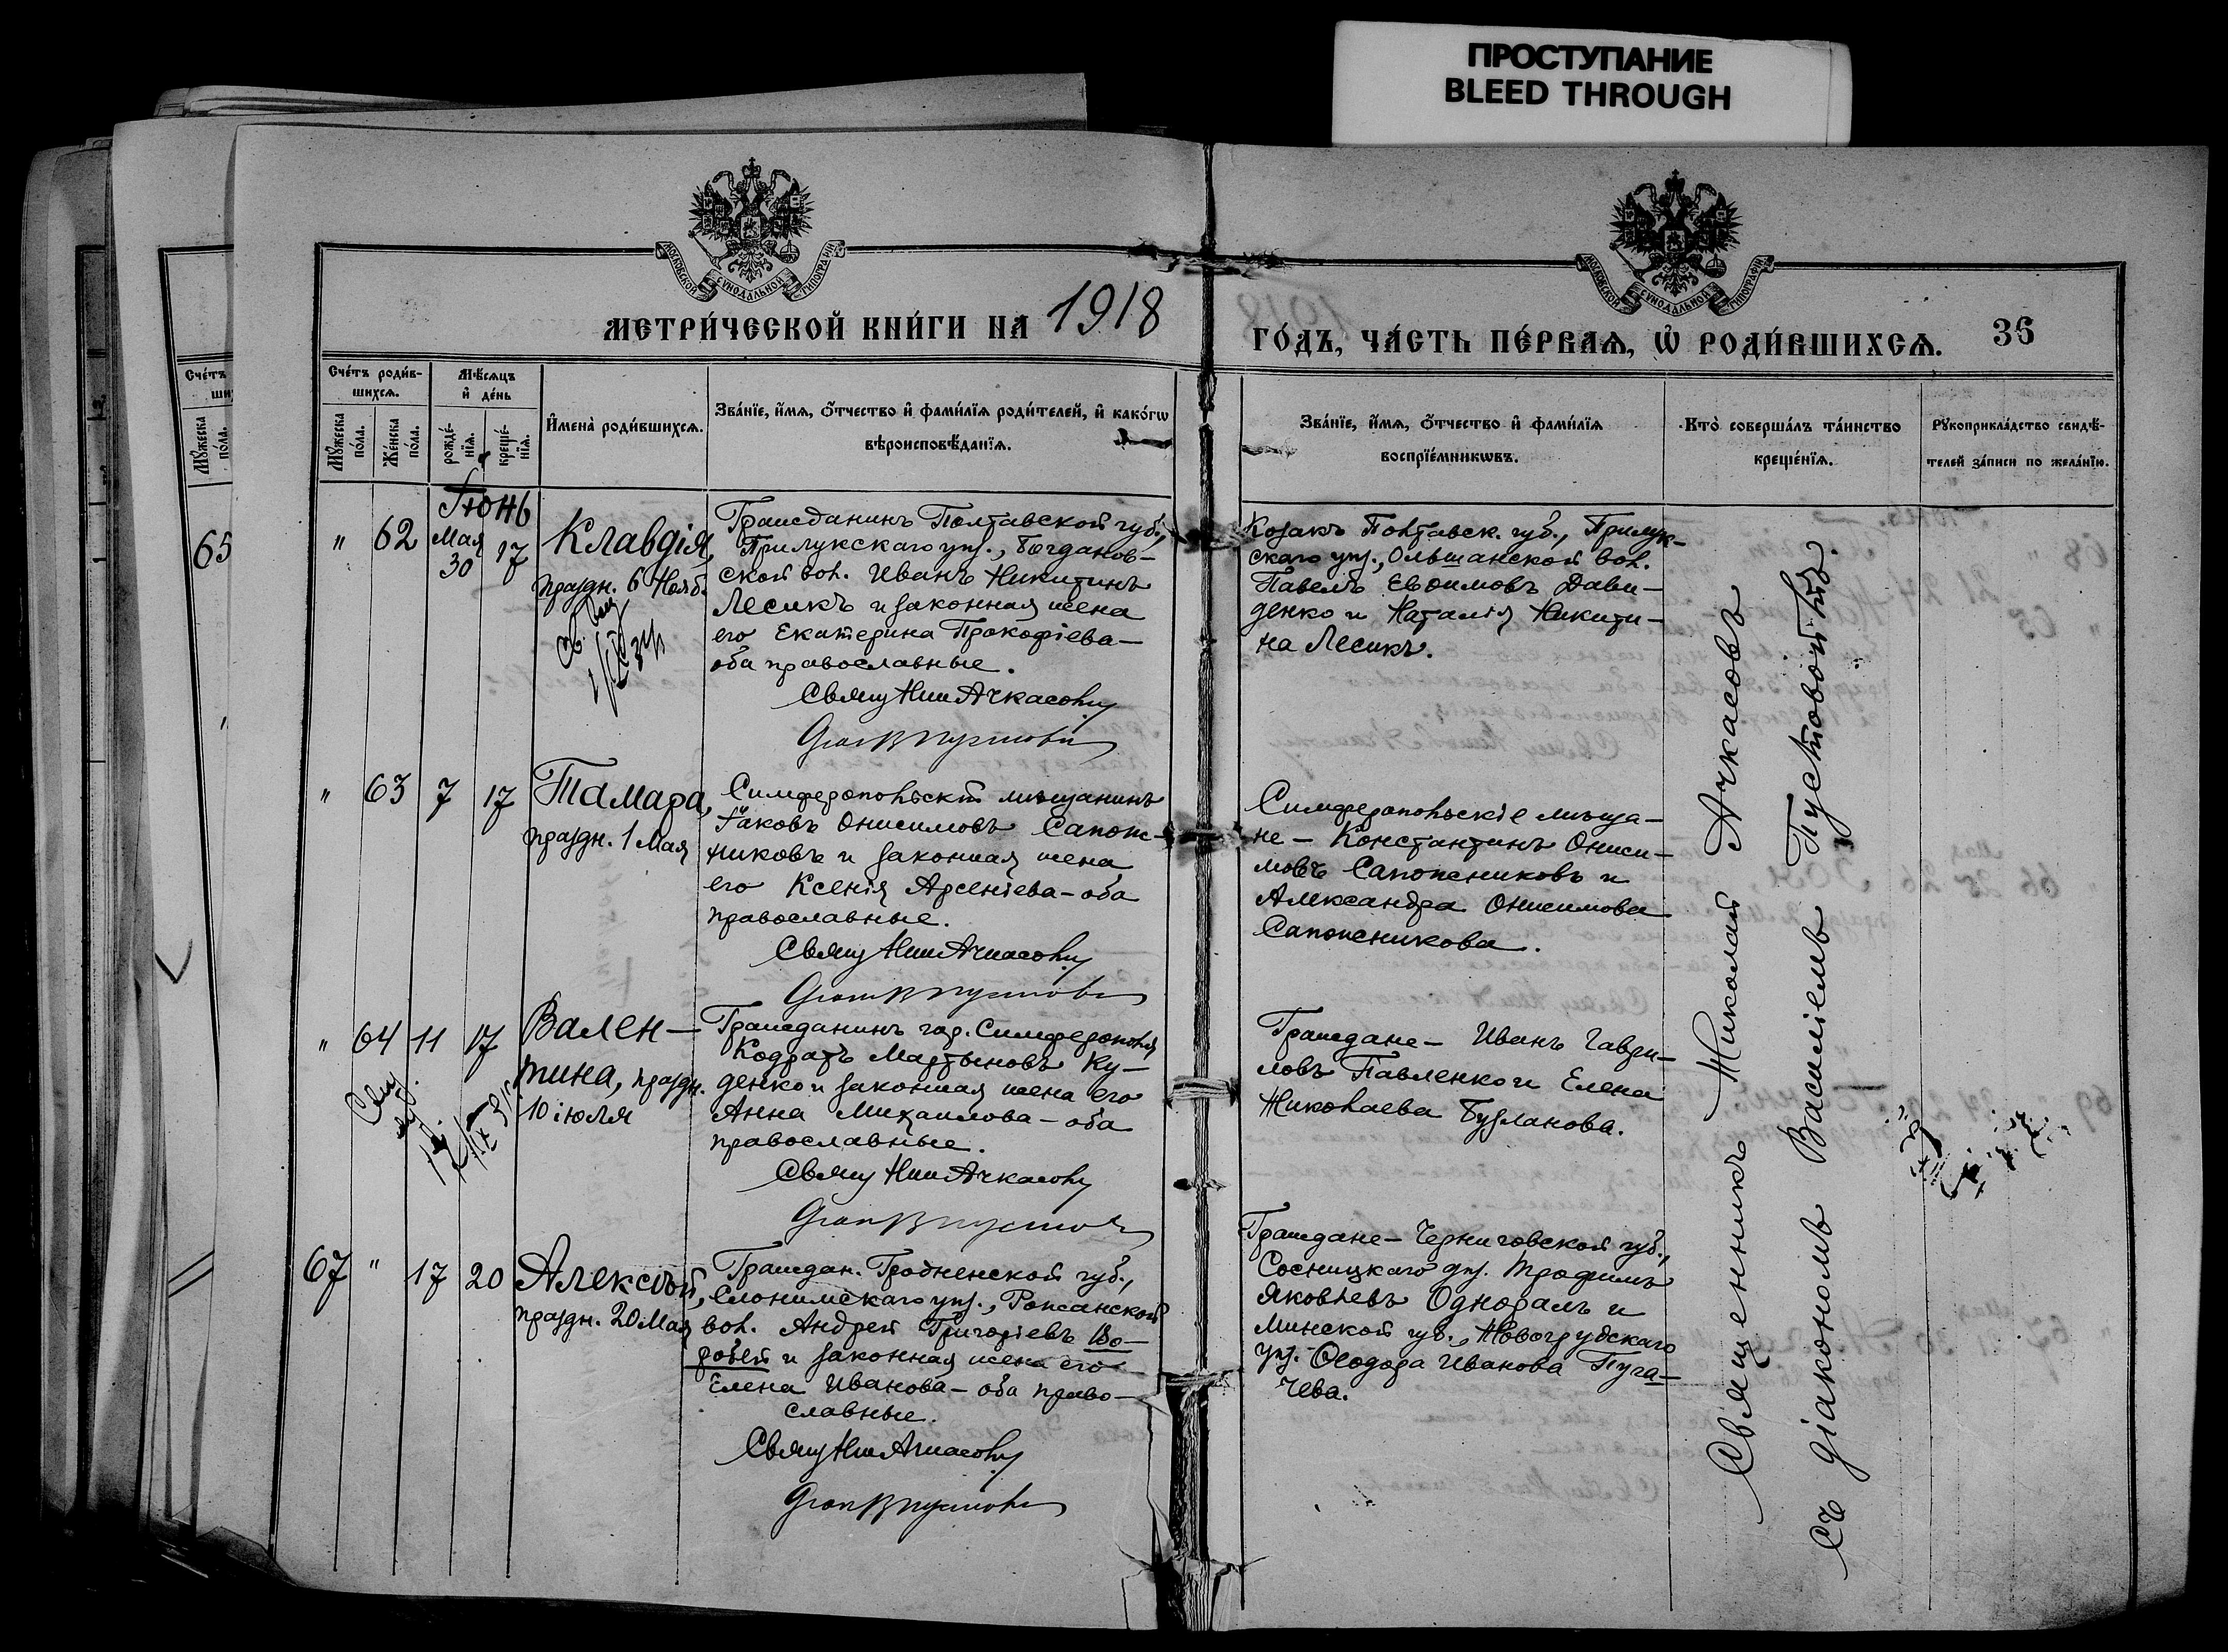 ПРОСТУПАНИЕ
BLEED THROUGH
МОСКОВСКОЙ СѴНОДАЛЬНОЙ ТИПОГРАФІИ
МОСКОВСКОЙ СѴНОДАЛЬНОЙ ТИПОГРАФІИ
МЕТРИ́ЧЕСКОЙ КНИ́ГИ НА 1918
ГО́ДЪ, ЧА́СТЬ ПЕ́РВАѦ, Ѡ҆ РОДИ́ВШИХСѦ. 36
Сче́тъ роди́в-
шихсѧ.
Мꙋ́жеска по́ла.
Же́нска по́ла.
Мѣ́сѧцъ
и҆ де́нь
рожде́-
нїѧ.
креще́-
нїѧ.
И҆мена̀ роди́вшихсѧ.
Зва́нїе, и҆́мѧ, ѻ҆́тчество и҆ фами́лїѧ роди́телей, и҆ како́гѡ
вѣроисповѣ́данїѧ.
Зва́нїе, и҆́мѧ, ѻ҆́тчество и҆ фами́лїѧ
воспрїе́мникѡвъ.
Кто̀ соверша́лъ та́инство
креще́нїѧ.
Рꙋкоприкла́дство свидѣ́-
телей за́писи по жела́нїю.
65
Іюнь
" 62 Мая 30 17
Клавдія,
праздн. 6 Нояб.
Гражданинъ Полтавской губ.,
Прилукскаго уѣз., Богданов-
ской вол. Иванъ Никитинъ
Лесикъ и законная жена
его Екатерина Прокофіева—
оба православные.
Свящ Ник Ачкасовъ
Козакъ Полтавск. губ., Прилук-
скаго уѣз., Ольшанской вол.
Павелъ Евѳимовъ Дави-
денко и Наталія Никити-
на Лесикъ.
" 63 7 17
Тамара,
праздн. 1 Мая
Симферопольскій мѣщанинъ
Іаковъ Онисимовъ Сапож-
никовъ и законная жена
его Ксенія Арсеніева—оба
православные.
Свящ Ник Ачкасовъ
Симферопольскіе мѣща-
не — Константинъ Ониси-
мовъ Сапожниковъ и
Александра Онисимова
Сапожникова.
" 64 11 17
Вален-
тина, праздн.
10 іюля
Гражданинъ гор. Симферополя
Кодратъ Мартыновъ Ку-
денко и законная жена его
Анна Михаилова—оба
православные.
Свящ Ник Ачкасовъ
Граждане — Иванъ Гаври-
ловъ Павленко и Елена
Николаева Бузланова.
67 " 17 20
Алексѣй,
праздн. 20 Мая
Граждан. Гродненской губ.,
Слонимскаго уѣз., Рожанской
вол. Андрей Григоріевъ Во-
робей и законная жена его
Елена Иванова — оба право-
славные.
Свящ Ник Ачкасовъ
Граждане — Черниговской губ.,
Сосницкаго уѣз. Трофимъ
Яковлевъ Однораль и
Минской губ., Новогрудскаго
уѣз. Ѳеодора Иванова Пуга-
чева.
Священникъ Николай Ачкасовъ
съ діакономъ Василіемъ Пустовойтъ.